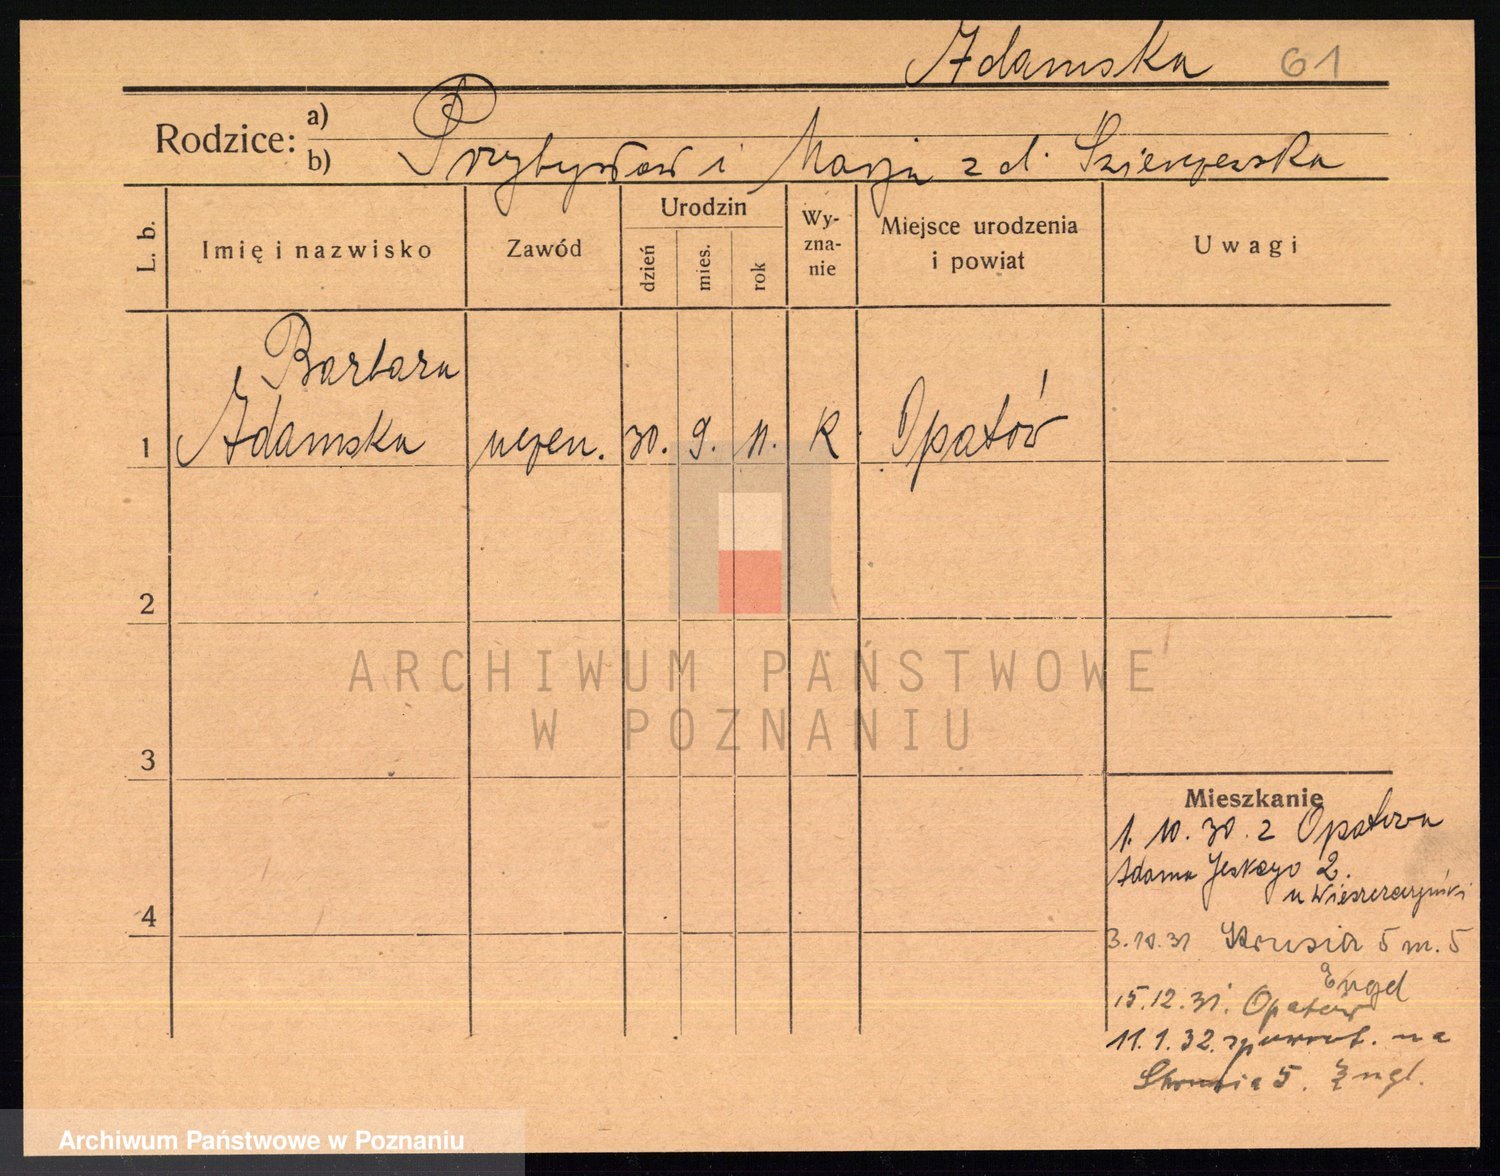 Adamska 61
Rodzice: a)
b) Przybysław i Marja z d.
L. b. Imię i nazwisko Zawód Urodzin dzień mies. rok Wy-zna-nie Miejsce urodzenia i powiat Uwagi
Barbara
1 Adamska uczen. 30. 9. 11. K. Opatów
2
3
4
ARCHIWUM PAŃSTWOWE
W POZNANIU
Mieszkanie
1. 10. 30. z Opatowa
Adama 2.
u
3.10.31 Strusia 5 m. 5
15.12.31. Opatów
11.1.32. zpowrot. na
Strusia 5.
Archiwum Państwowe w Poznaniu